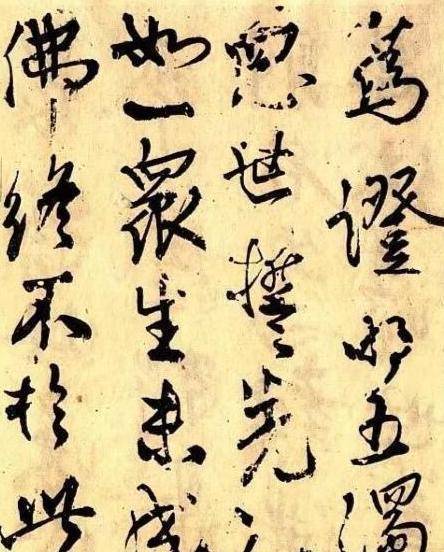 為證明五濁
惡世誓先入
如一眾生未成
佛終不於此